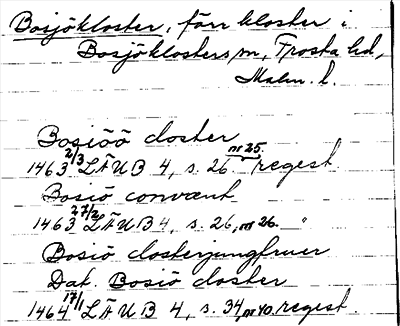 Bosjökloster, förr kloster i
Bosjöklosters sn, Frosta hd,
Malm. l.
Bosiöö closter
1463 2/3 LÄUB 4, s. 26 nr 25. regest.
Bosiö convænt
1463 27/2 LÄUB 4, s. 26, nr 26. "
Bosiö closterjungfruer
Dat. Bosiö closter
1464 17/1 LÄUB 4, s. 34, nr 40. regest.